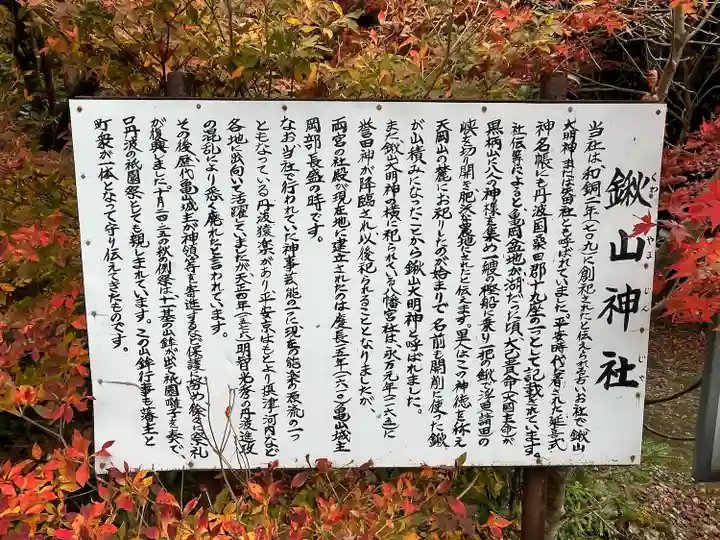 鍬山神社
くわ やま じん じゃ
当社は、和銅二年(七〇九)に創祀されたと伝えられる古いお社で、鍬山
大明神または矢田社とも呼ばれていました。平安時代に著された延喜式
神名帳にも丹波国桑田郡十九座の一つとして記載されています。
社伝等によると、亀岡盆地が湖だった頃、大己貴命(大国主命)が
黒柄山に八人の神様を集め一艘の樫船に乗り一把の鍬で浮田請田の
峡を切り開き肥沃な農地にされたと伝えます。里人はこの神徳を称え
天岡山の麓にお祀りしたのが始まりで、名前も開削に使った鍬
が山積みになったことから鍬山大明神と呼ばれました。
また鍬山大明神の横に祀られている八幡宮社は、永万元年(一一六五)に
誉田神が降臨され以後祀られることとなりましたが、
両宮の社殿が現在地に建立されたのは慶長十五年(一六一〇)亀山城主
岡部長盛の時です。
なお当社で行われていた神事芸能の一つに現在の能楽の源流の一つ
ともなっている丹波猿楽があり平安京はもとより摂津河内など
各地に出向いて活躍していましたが天正四年(一五七六)明智光秀の丹波進攻
の混乱により悉く廃れたと言われています。
その後、歴代亀山城主が神領等を寄進するなど保護に努め、徐々に祭礼
が復興しました。十月二〇〜二五の秋例祭は、十一基の山鉾が出て祇園囃子を奏で、
口丹波の祇園祭としても親しまれています。この山鉾行事も藩主と
町衆が一体となって守り伝えてきたものです。